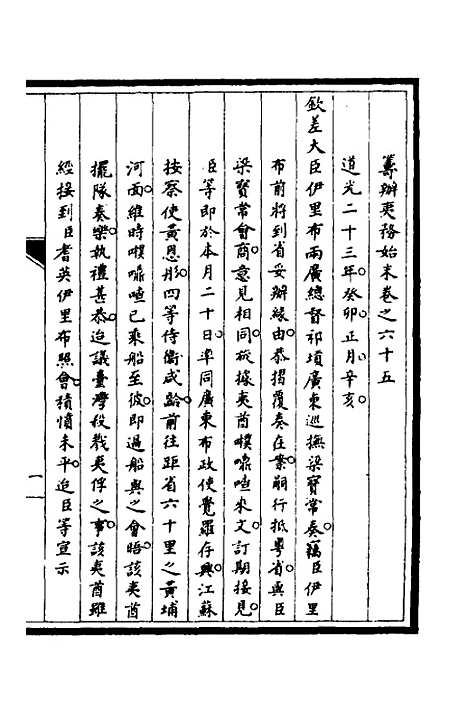 籌辦夷務始末卷之六十五
道光二十三年癸卯正月辛亥
欽差大臣伊里布兩廣總督祁𡎴廣東巡撫梁寶常奏竊臣伊里
布前將到省妥辦緣由恭摺覆奏在案嗣行抵粵省與臣
梁寶常會商意見相同檄據夷酋㗎𠸄喳來文訂期接見
臣等即於本月二十日率同廣東布政使覺羅存興江蘇
按察使黃恩彤四等侍衞咸齡前往距省六十里之黃埔
河面維時㗎𠸄喳已乘船至彼即過船與之會晤該夷酋
擺隊奏樂執禮甚恭迨議臺灣殺戮夷俘之事該夷酋雖
經接到臣耆英伊里布照會積憤未平迨臣等宣示
一